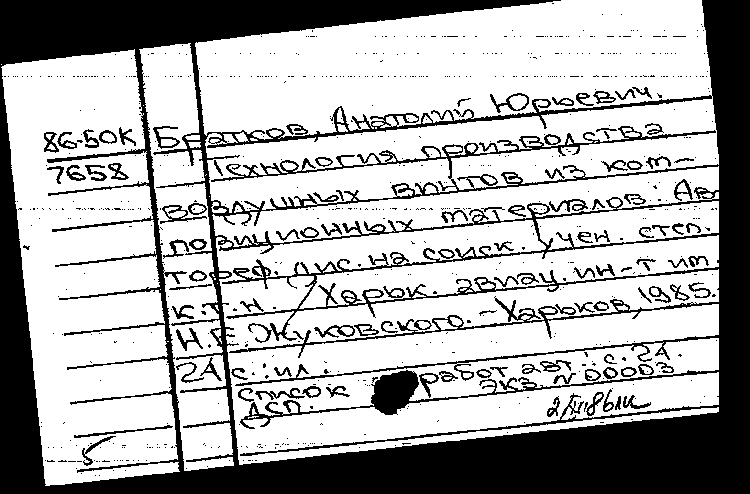 86-50К Братков, Анатолий Юрьевич.
7658 Технология производства
воздушных винтов из ком-
позиционных материалов: Ав
тореф. дис. на соиск. учен. степ.
к.т.н. / Харьк. авиац. ин-т им.
Н.Е. Жуковского. - Харьков, 1985.
24 с.: ил.
список работ авт.: с. 24.
ДСП. экз. N 00003
5